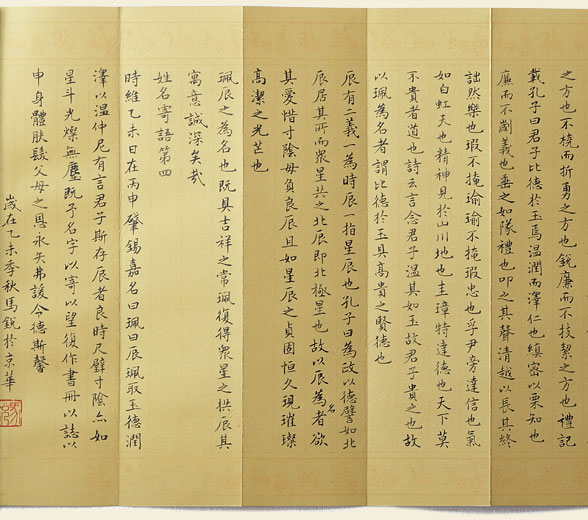 之方也不橈而折勇之方也銳廉而不技絜之方也禮記
載孔子曰君子比德於玉焉溫潤而澤仁也縝密以栗知也
廉而不劌義也垂之如隊禮也叩之其聲清越以長其終
詘然樂也瑕不掩瑜瑜不掩瑕忠也孚尹旁達信也氣
如白虹天也精神見於山川地也圭璋特達德也天下莫
不貴者道也詩云言念君子溫其如玉故君子貴之也故
以珮為名者謂比德於玉具高貴之賢德也
辰有二義一為時辰一指星辰也孔子曰為政以德譬如北
辰居其所而眾星共之北辰即北極星也故以辰為名者欲
其愛惜寸陰毋負良辰且如星辰之貞固恒久現璀璨
高潔之光芒也
珮辰之為名也既具吉祥之常珮復得眾星之拱辰其
寓意誠深矣哉
姓名寄語第四
時維乙未日在丙申肇錫嘉名曰珮曰辰珮取玉德潤
澤以溫仲尼有言君子斯存辰者良時尺璧寸陰亦如
星斗光燦無塵既予名字以寄以望復作書冊以誌以
申身體膚髮父母之恩永矢弗諼令德斯馨
歲在乙未季秋馬銳於京華